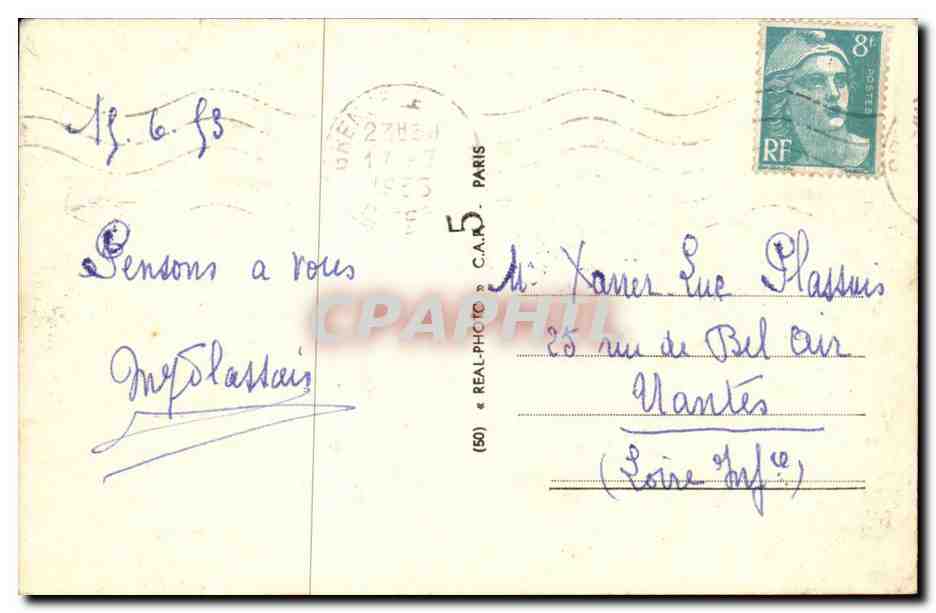 15.6.53
Pensons a vous
Plassais
5
(50) « REAL-PHOTO » C.A.P. - PARIS
8f
POSTES
RF
27H30
17 - 7
1953
Mr Xavier Luc Plassais
25 rue de Bel Air
Nantes
(Loire Infre)
CPAPHIL